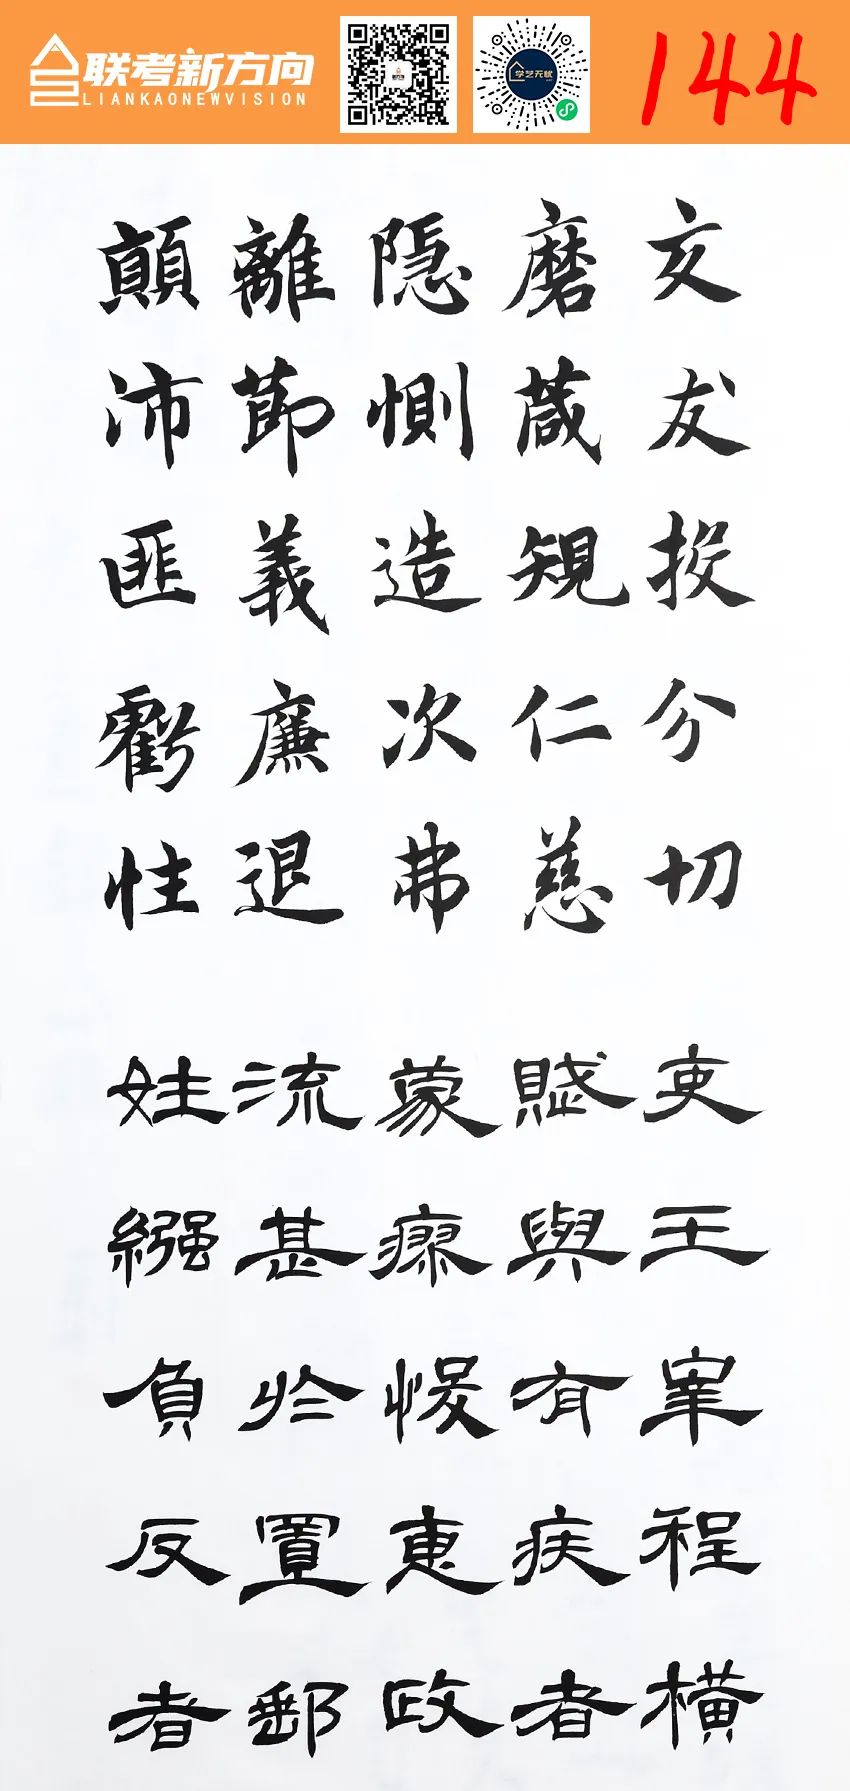 联考新方向
LIANKAONEWVISION
学艺无忧
144
交友投分切
磨箴規仁慈
隱惻造次弗
離節義廉退
顛沛匪虧性
吏王皐程横
賦與有疾者
蒙瘳悛惠政
流甚於置郵
姓繦負反者